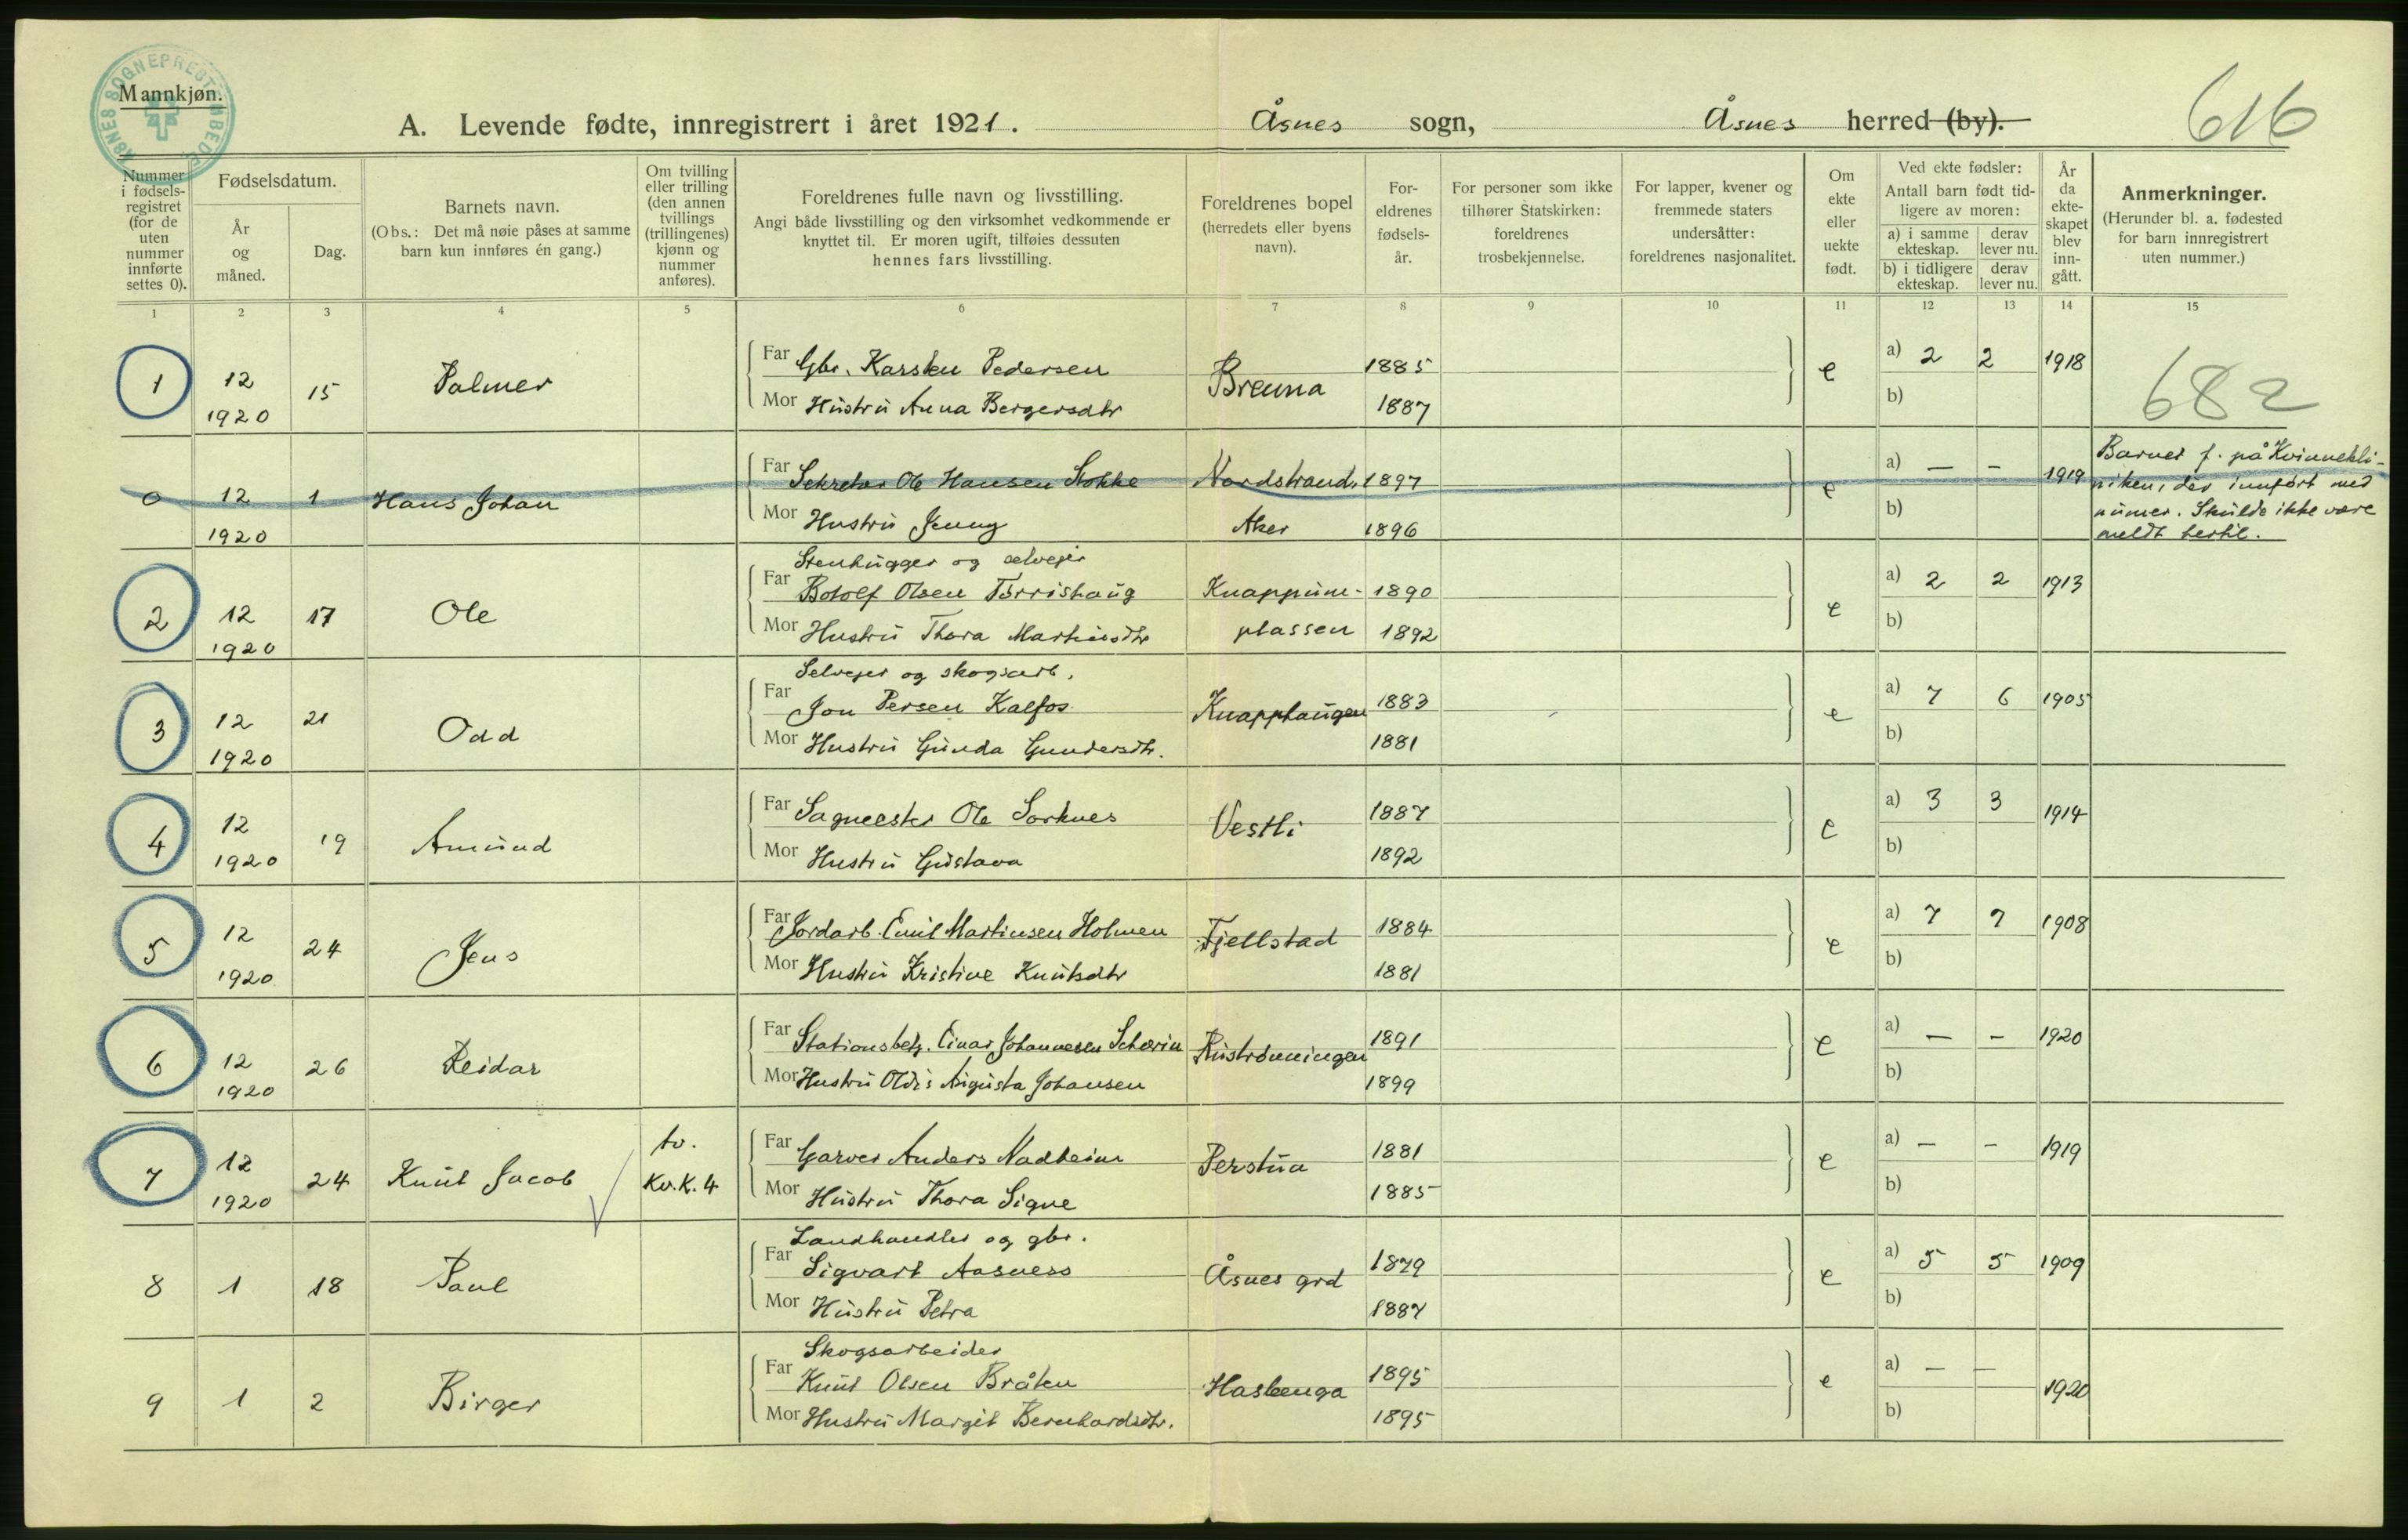 ÅSNES SOGNEPRESTEMBEDE
Mannkjøn.
A. Levende fødte, innregistrert i året 1921. Åsnes sogn, Åsnes herred (by). 616
Nummer i fødsels-registret (for de uten nummer innførte settes 0).
Fødselsdatum.
År og måned.
Dag.
Barnets navn.
(Obs.: Det må nøie påses at samme barn kun innføres én gang.)
Om tvilling eller trilling (den annen tvillings (trillingenes) kjønn og nummer anføres).
Foreldrenes fulle navn og livsstilling.
Angi både livsstilling og den virksomhet vedkommende er knyttet til. Er moren ugift, tilføies dessuten hennes fars livsstilling.
Foreldrenes bopel (herredets eller byens navn).
For-eldrenes fødsels-år.
For personer som ikke tilhører Statskirken: foreldrenes trosbekjennelse.
For lapper, kvener og fremmede staters undersåtter: foreldrenes nasjonalitet.
Om ekte eller uekte født.
Ved ekte fødsler:
Antall barn født tid-ligere av moren:
a) i samme ekteskap. derav lever nu.
b) i tidligere ekteskap. derav lever nu.
År da ekte-skapet blev inn-gått.
Anmerkninger.
(Herunder bl. a. fødested for barn innregistrert uten nummer.)
1 2 3 4 5 6 7 8 9 10 11 12 13 14 15
1 12 1920 15 Palmer
Far Gbr. Karsten Pedersen Brenna 1885 e a) 2 2 1918 682
Mor Hustru Anna Bergersdtr 1887 b)
0 12 1920 1 Hans Johan
Far Sekretær Ole Hansen Stokke Nordstrand, 1897 e a) — – 1919
Mor Hustru Jenny Aker 1896 b)
Barnet f. på Kvinnekli-
niken, der innført med
numer. Skulde ikke være
meldt hertil.
2 12 1920 17 Ole
Stenhugger og selveier
Far Botolf Olsen Torrishaug Knappum- 1890 e a) 2 2 1913
Mor Hustru Thora Martinsdtr plassen 1892 b)
3 12 1920 21 Odd
Selveier og skogsarb.
Far Jon Persen Kalfos Knapphaugen 1883 e a) 7 6 1905
Mor Hustru Gunda Gundersdtr. 1881 b)
4 12 1920 19 Amund
Far Sagmester Ole Sorknes Vestli 1887 e a) 3 3 1914
Mor Hustru Gustava 1892 b)
5 12 1920 24 Jens
Far Jordarb. Emil Martinsen Holmen Fjellstad 1884 e a) 7 7 1908
Mor Hustru Kristine Knutsdtr 1881 b)
6 12 1920 26 Reidar
Far Stationsbetj. Einar Johannesen 1891 e a) — – 1920
Mor Hustru Oldis Augusta Johansen 1899 b)
7 12 1920 24 Knut Jacob tv. Kv.K. 4
Far Garver Anders Nadheim Perstua 1881 e a) – – 1919
Mor Hustru Thora Signe 1885 b)
8 1 18 Paul
Landhandler og gbr.
Far Sigvart Aasness Åsnes grd 1879 e a) 5 5 1909
Mor Hustru Petra 1887 b)
9 1 2 Birger
Skogsarbeider
Far Knut Olsen Bråten Hasleenga 1895 e a) — — 1920
Mor Hustru Margit Bernhardsdtr. 1895 b)